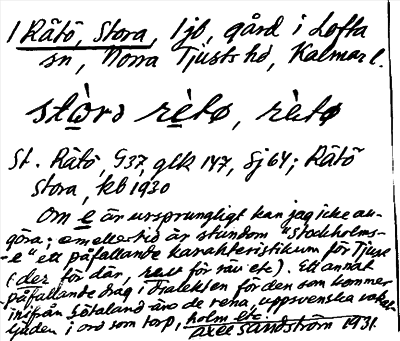 1 Rätö, Stora, 1 jb, gård i Lofta
sn, Norra Tjusts hd, Kalmar l.
stòrɔ rètø, rètø
St. Rätö, G37, glk 147, Sj 64; Rätö
Stora, kb 1930
Om e är ursprungligt kan jag icke av-
göra; emellertid är stundom "Stockholms-
-e" ett påfallande karakteristikum för Tjust
(der för där, rev för räv etc). Ett annat
påfallande drag i dialekten för den som kommer
inifrån Götaland äro de rena, uppsvenska vokal-
ljuden i ord som torp, holm etc.
Axel Sandström 1931.